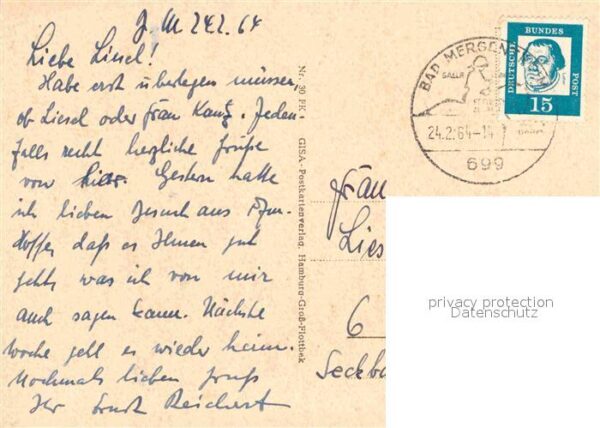 24.2.64
Liebe Liesel!
Habe erst überlegen müssen,
ob Liesel oder Frau Kanz. Jeden-
falls recht herzliche Grüße
von hier. Gestern hatte
ich lieben Besuch aus
hoffe, daß es Ihnen gut
geht, was ich von mir
auch sagen kann. Nächste
Woche geht es wieder heim.
Nochmals lieben Gruß
Ihr Ernst Reichert
Nr. 30 FK GISA-Postkartenverlag, Hamburg-Groß-Flottbek
BAD MERGEN
24.2.64-14
699
DEUTSCHE BUNDES POST
15
Frau
Lies
6
Seckb
privacy protection
Datenschutz